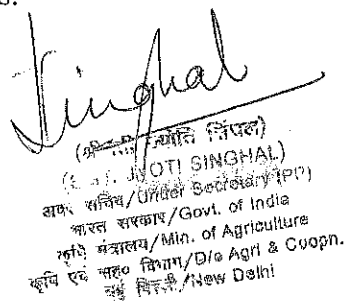 Singhal
ज्योति सिंघल)
JYOTI SINGHAL)
अवर सचिव/Under Secretary (PP)
भारत सरकार/Govt. of India
कृषि मंत्रालय/Min. of Agriculture
कृषि एवं सह० विभाग/D/o Agri & Coopn.
नई दिल्ली/New Delhi